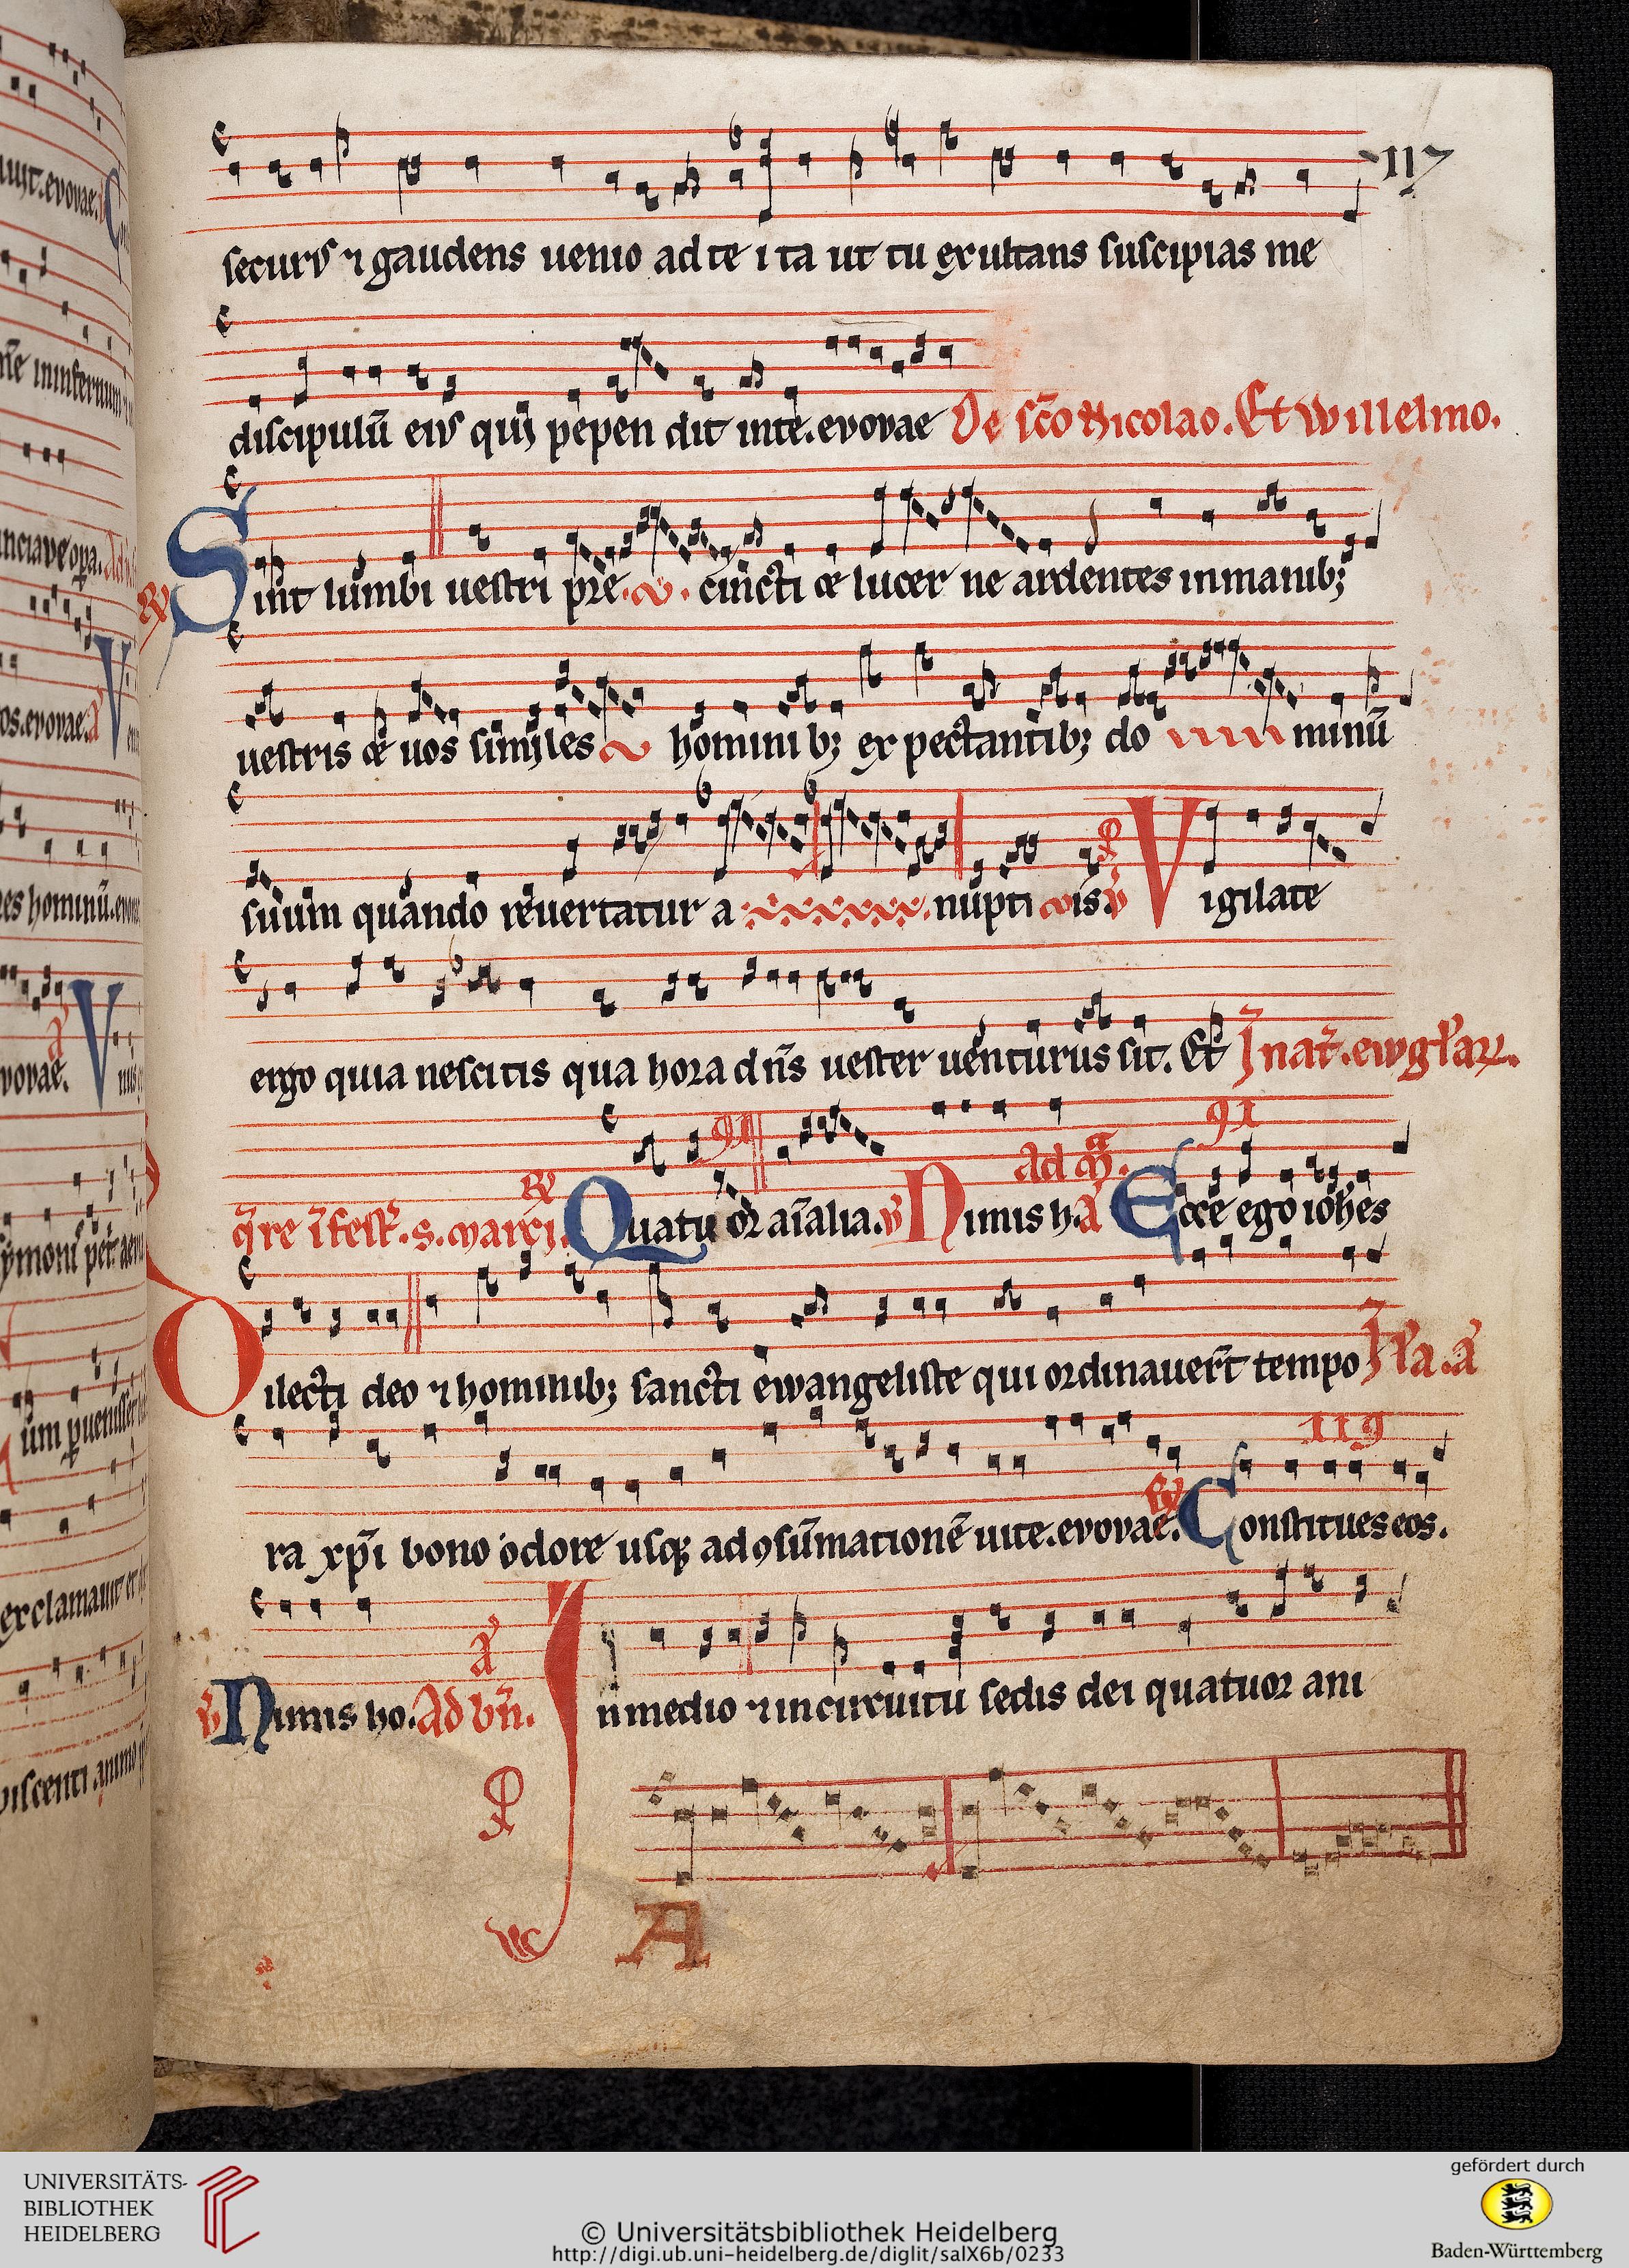 117
securꝰ ⁊ gaudens uenio ad te i ta ut tu exultans suscipias me
discipulū eiꝰ qui pepen dit inte. evovae De scō Nicolao. Et Willelmo.
Sint lumbi uestri pre cincti & lucer ne ardentes in manibꝫ
uestris & uos similes homini bꝫ expectantibꝫ do minū
suum quando reuertatur a nupti is. Vigilate
ergo quia nescitis qua hora dn̄s uester uenturus sit. Et In nat̄. ewgl'ar.
91 91
ad m̄.
q̄re ī fest. s. marci. Quatuor aīalia. Nimis h. a Ecce ego ioh̄es
Dilecti deo ⁊ hominibꝫ sancti ewangeliste qui ordinauer̄t tempo
119
ra xp̄i bono odore usqꝫ ad ꝯsūmationē uite. evovae. Constitues eos.
Nimis ho. Ad vn̄. a In medio ⁊ in circuitu sedis dei quatuor ani
A
UNIVERSITÄTS-
BIBLIOTHEK
HEIDELBERG
© Universitätsbibliothek Heidelberg
http://digi.ub.uni-heidelberg.de/diglit/salX6b/0233
gefördert durch
Baden-Württemberg